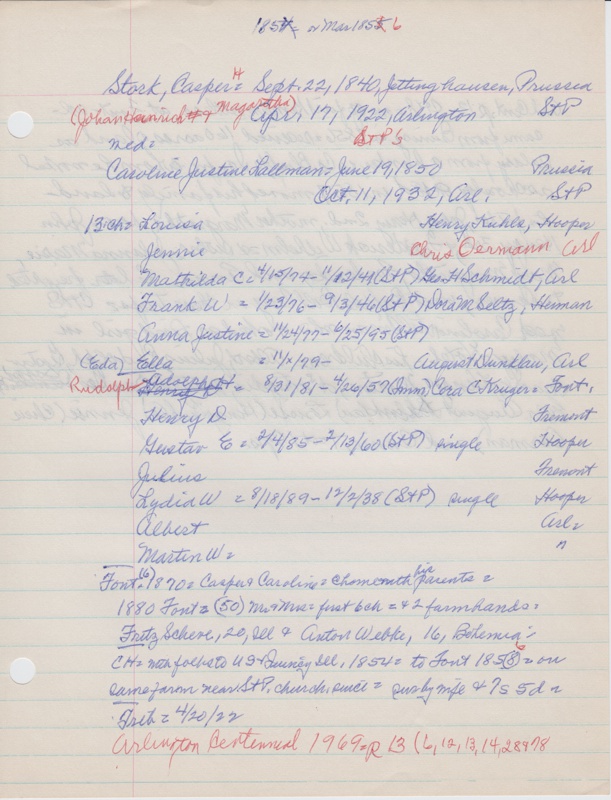 1854 = or Mar 1855 6
Stork, Casper H = Sept. 22, 1840, Prussia
(Johan Heinrich + Magaretha) Apr. 17, 1922, Arlington St P
med = St P's
Caroline Justine Lallman = June 19, 1850 Prussia
Oct. 11, 1932, Arl. St P
13 ch = Louisa Henry Kuhls, Hooper
Jennie Chris Oermann Arl
Mathilda C = 4/15/74 - 11/22/49 (St P) Geo H Schmidt, Arl
Frank W = 1/23/76 - 9/3/46 (St P) Dora M Seltz, Human
Anna Justine = 11/24/77 - 6/25/95 (St P)
(Eda) Ella = 11/ /79 - August Dunklau, Arl
Rudolph Adolph H = 8/31/81 - 4/26/57 (Imm) Cora C Kruger = Font.
Henry D Fremont
Gustav E = 2/4/85 - 2/13/60 (St P) single Hooper
Julius Fremont
Lydia W = 8/18/89 - 12/2/38 (St P) single Hooper
Albert Arl =
Martin W = "
Font. (16) 1870 = Casper & Caroline = home with his parents =
1880 Font = (50) Mr & Mrs = first 6 ch = + 2 farmhands =
Fritz Scheve, 20, Ill & Anton Webke, 16, Bohemia =
CH = with folks to US + Quincy Ill, 1854 = to Font 185(8) 6 = on
same farm near St P. church since = surv by wife & 7s 5d =
Trib = 4/20/22
Arlington Centennial 1969 = p 13 (6, 12, 13, 14, 28 + 78